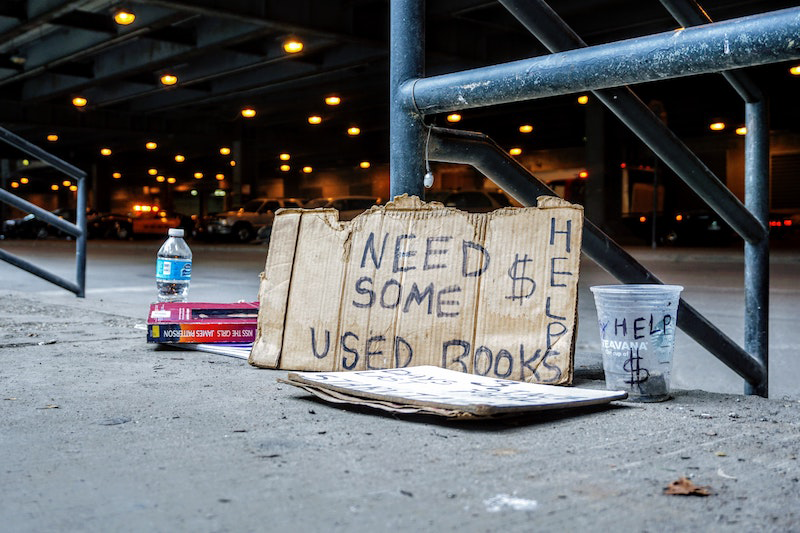 NEED
SOME
USED BOOKS
$
HELPS
KISS THE GIRLS JAMES PATTERSON
HELP
TEAVANA
$